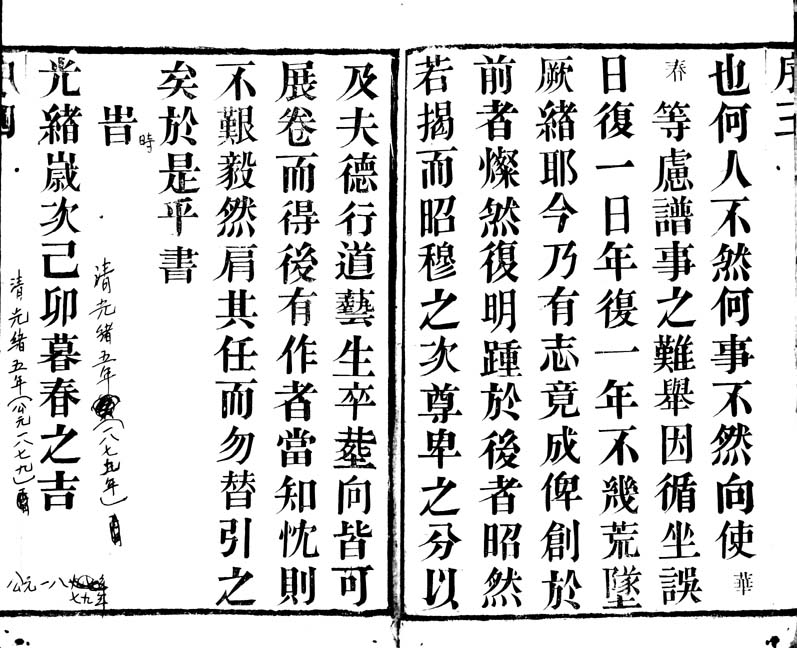 也何人不然何事不然向使華
春等慮譜事之難舉因循坐誤
日復一日年復一年不幾荒墜
厥緒耶今乃有志竟成俾創於
前者燦然復明踵於後者昭然
若揭而昭穆之次尊卑之分以
及夫德行道藝生卒塟向皆可
展卷而得後有作者當知忱則
不艱毅然肩其任而勿替引之
矣於是乎書
時
旹
清光緒五年（一八七五年）
光緒歲次己卯暮春之吉
清光緒五年（公元一八七九）
公元一八七九年